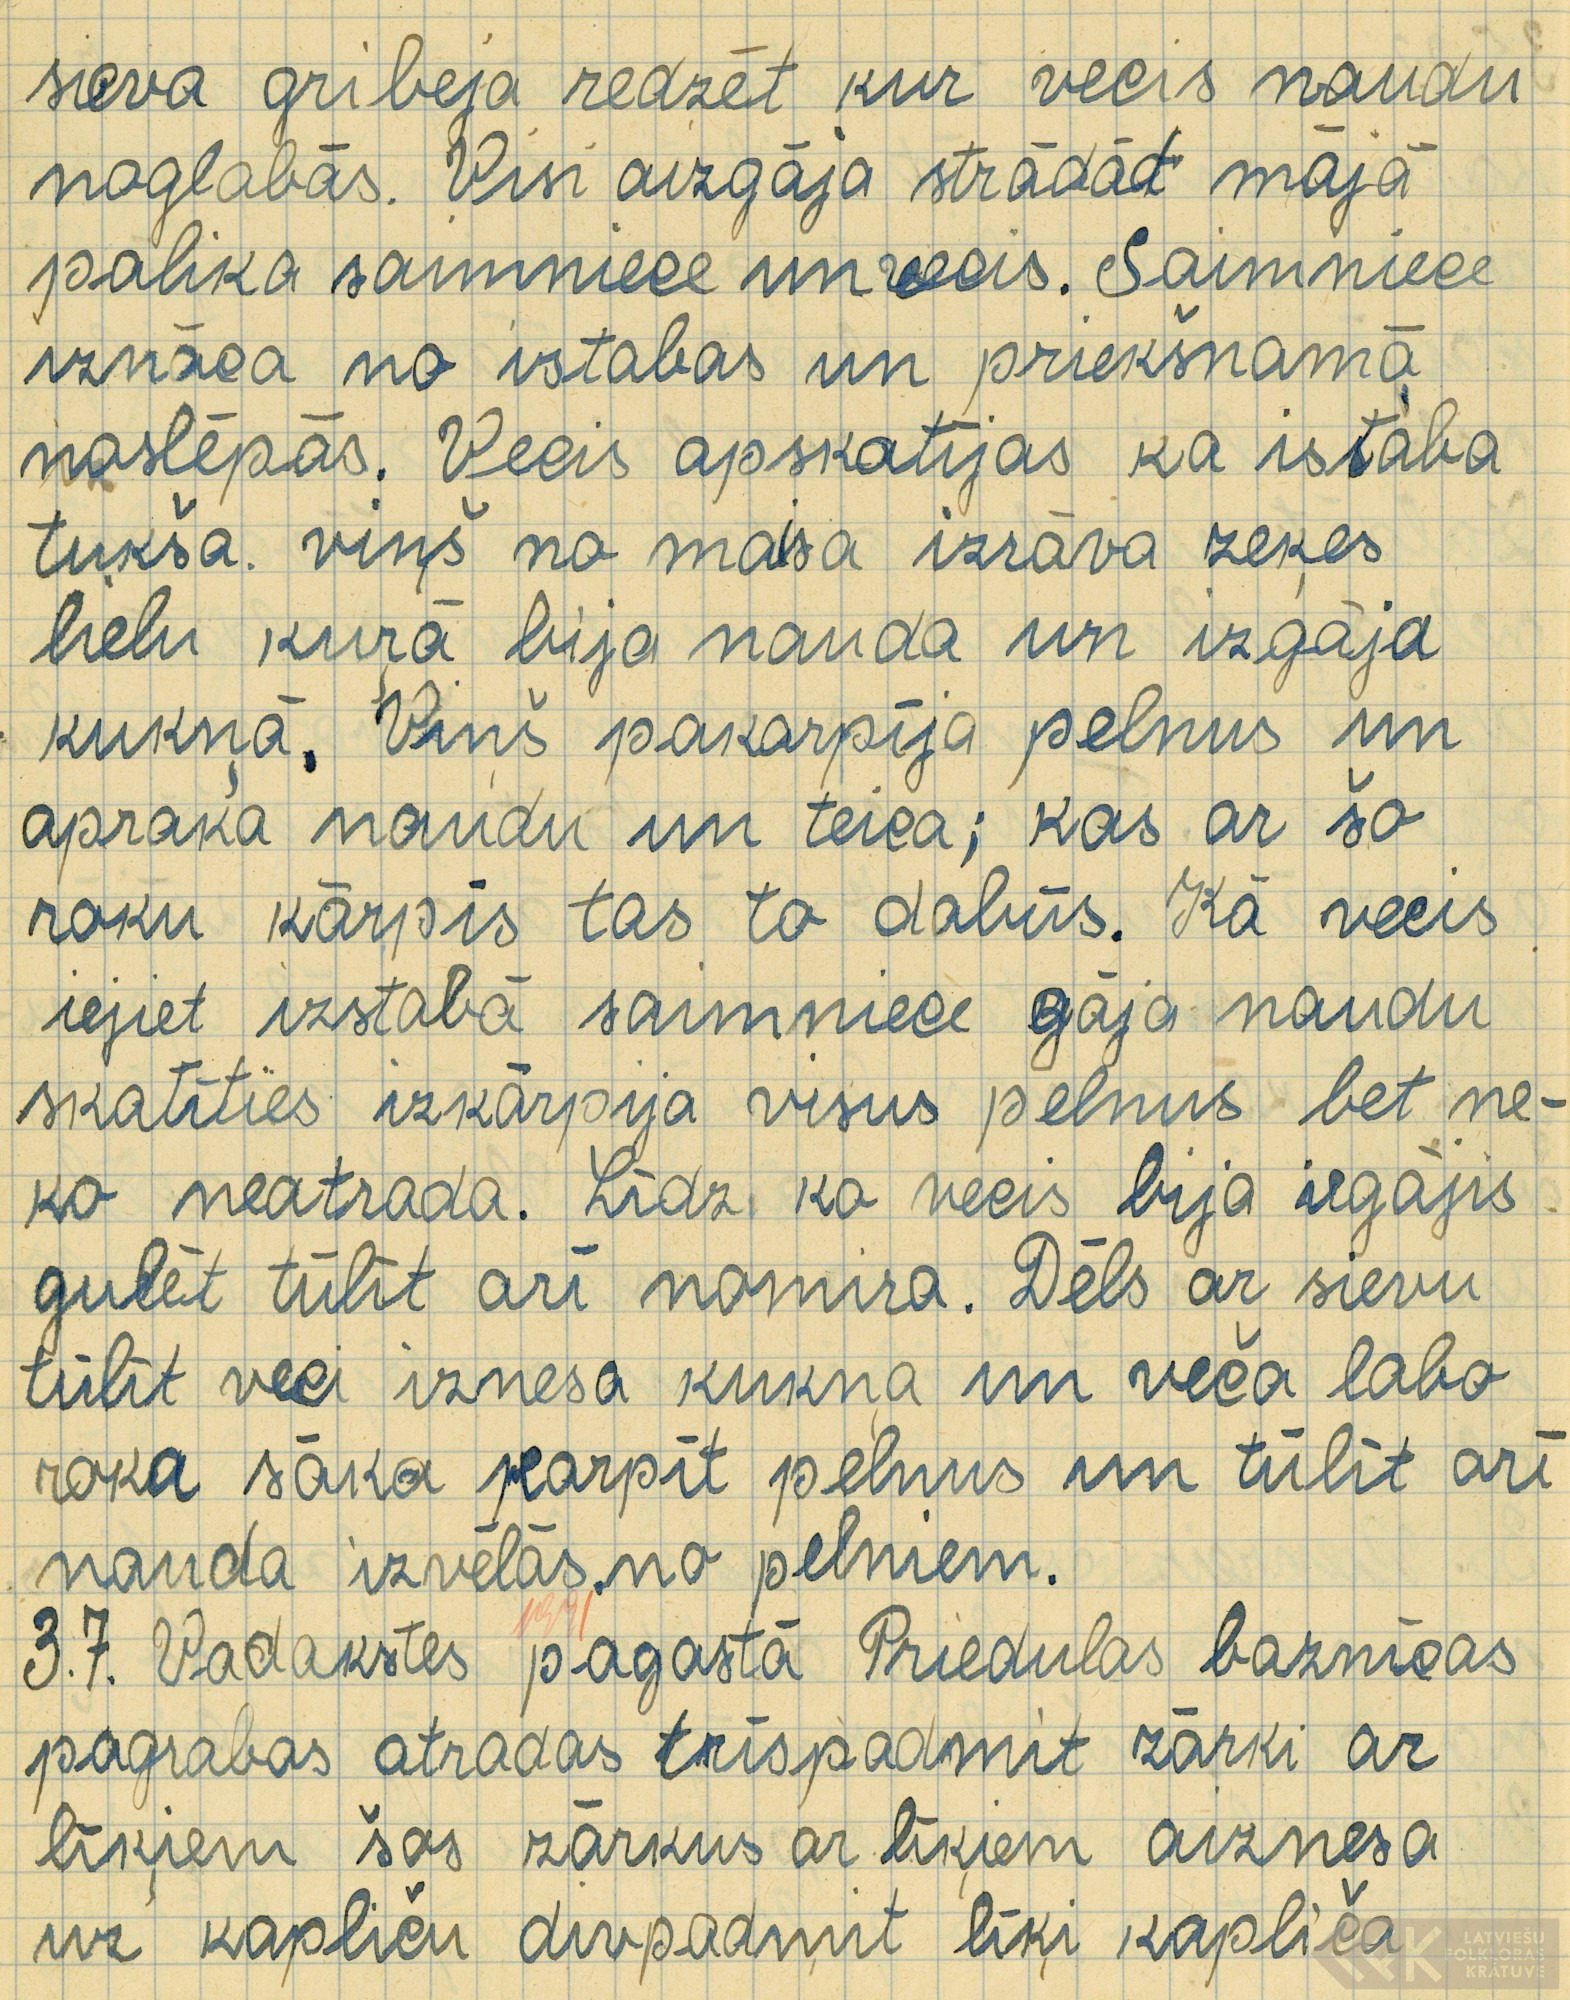 sieva gribeja redzēt kur vecis naudu
noglabās. Visi aizgāja strādāt mājā
palika saimniece un vecis. Saimniece
iznāca no istabas un priekšnamā
noslēpās. Vecis apskatījas ka istaba
tukša. viņš no maisa izrāva zeķes
lielu kuŗā bija nauda un izgāja
kukņā. Viņš pakarpīja pelnus un
apraķa naudu un teica; kas ar šo
roku kārpīs tas to dabūs. Kā vecis
iejiet izstabā saimniece gāja naudu
skatīties izkārpija visus pelnus bet ne-
ko neatrada. Līdz ko vecis bija iegājis
gulēt tūlīt arī nomira. Dēls ar sievu
tūlīt veci iznesa kukņa un veča labo
roka sāka karpīt pelnus un tūlīt arī
nauda izvēlās no pelniem.
1991
3.7. Vadakstes pagastā Priedulas baznīcas
pagrabas atradas trīspadmit zārki ar
līķiem šos zārkus ar līķiem aiznesa
uz kapliču divpadmit līķi kapliča
LATVIEŠU
FOLKLORAS
KRĀTUVE